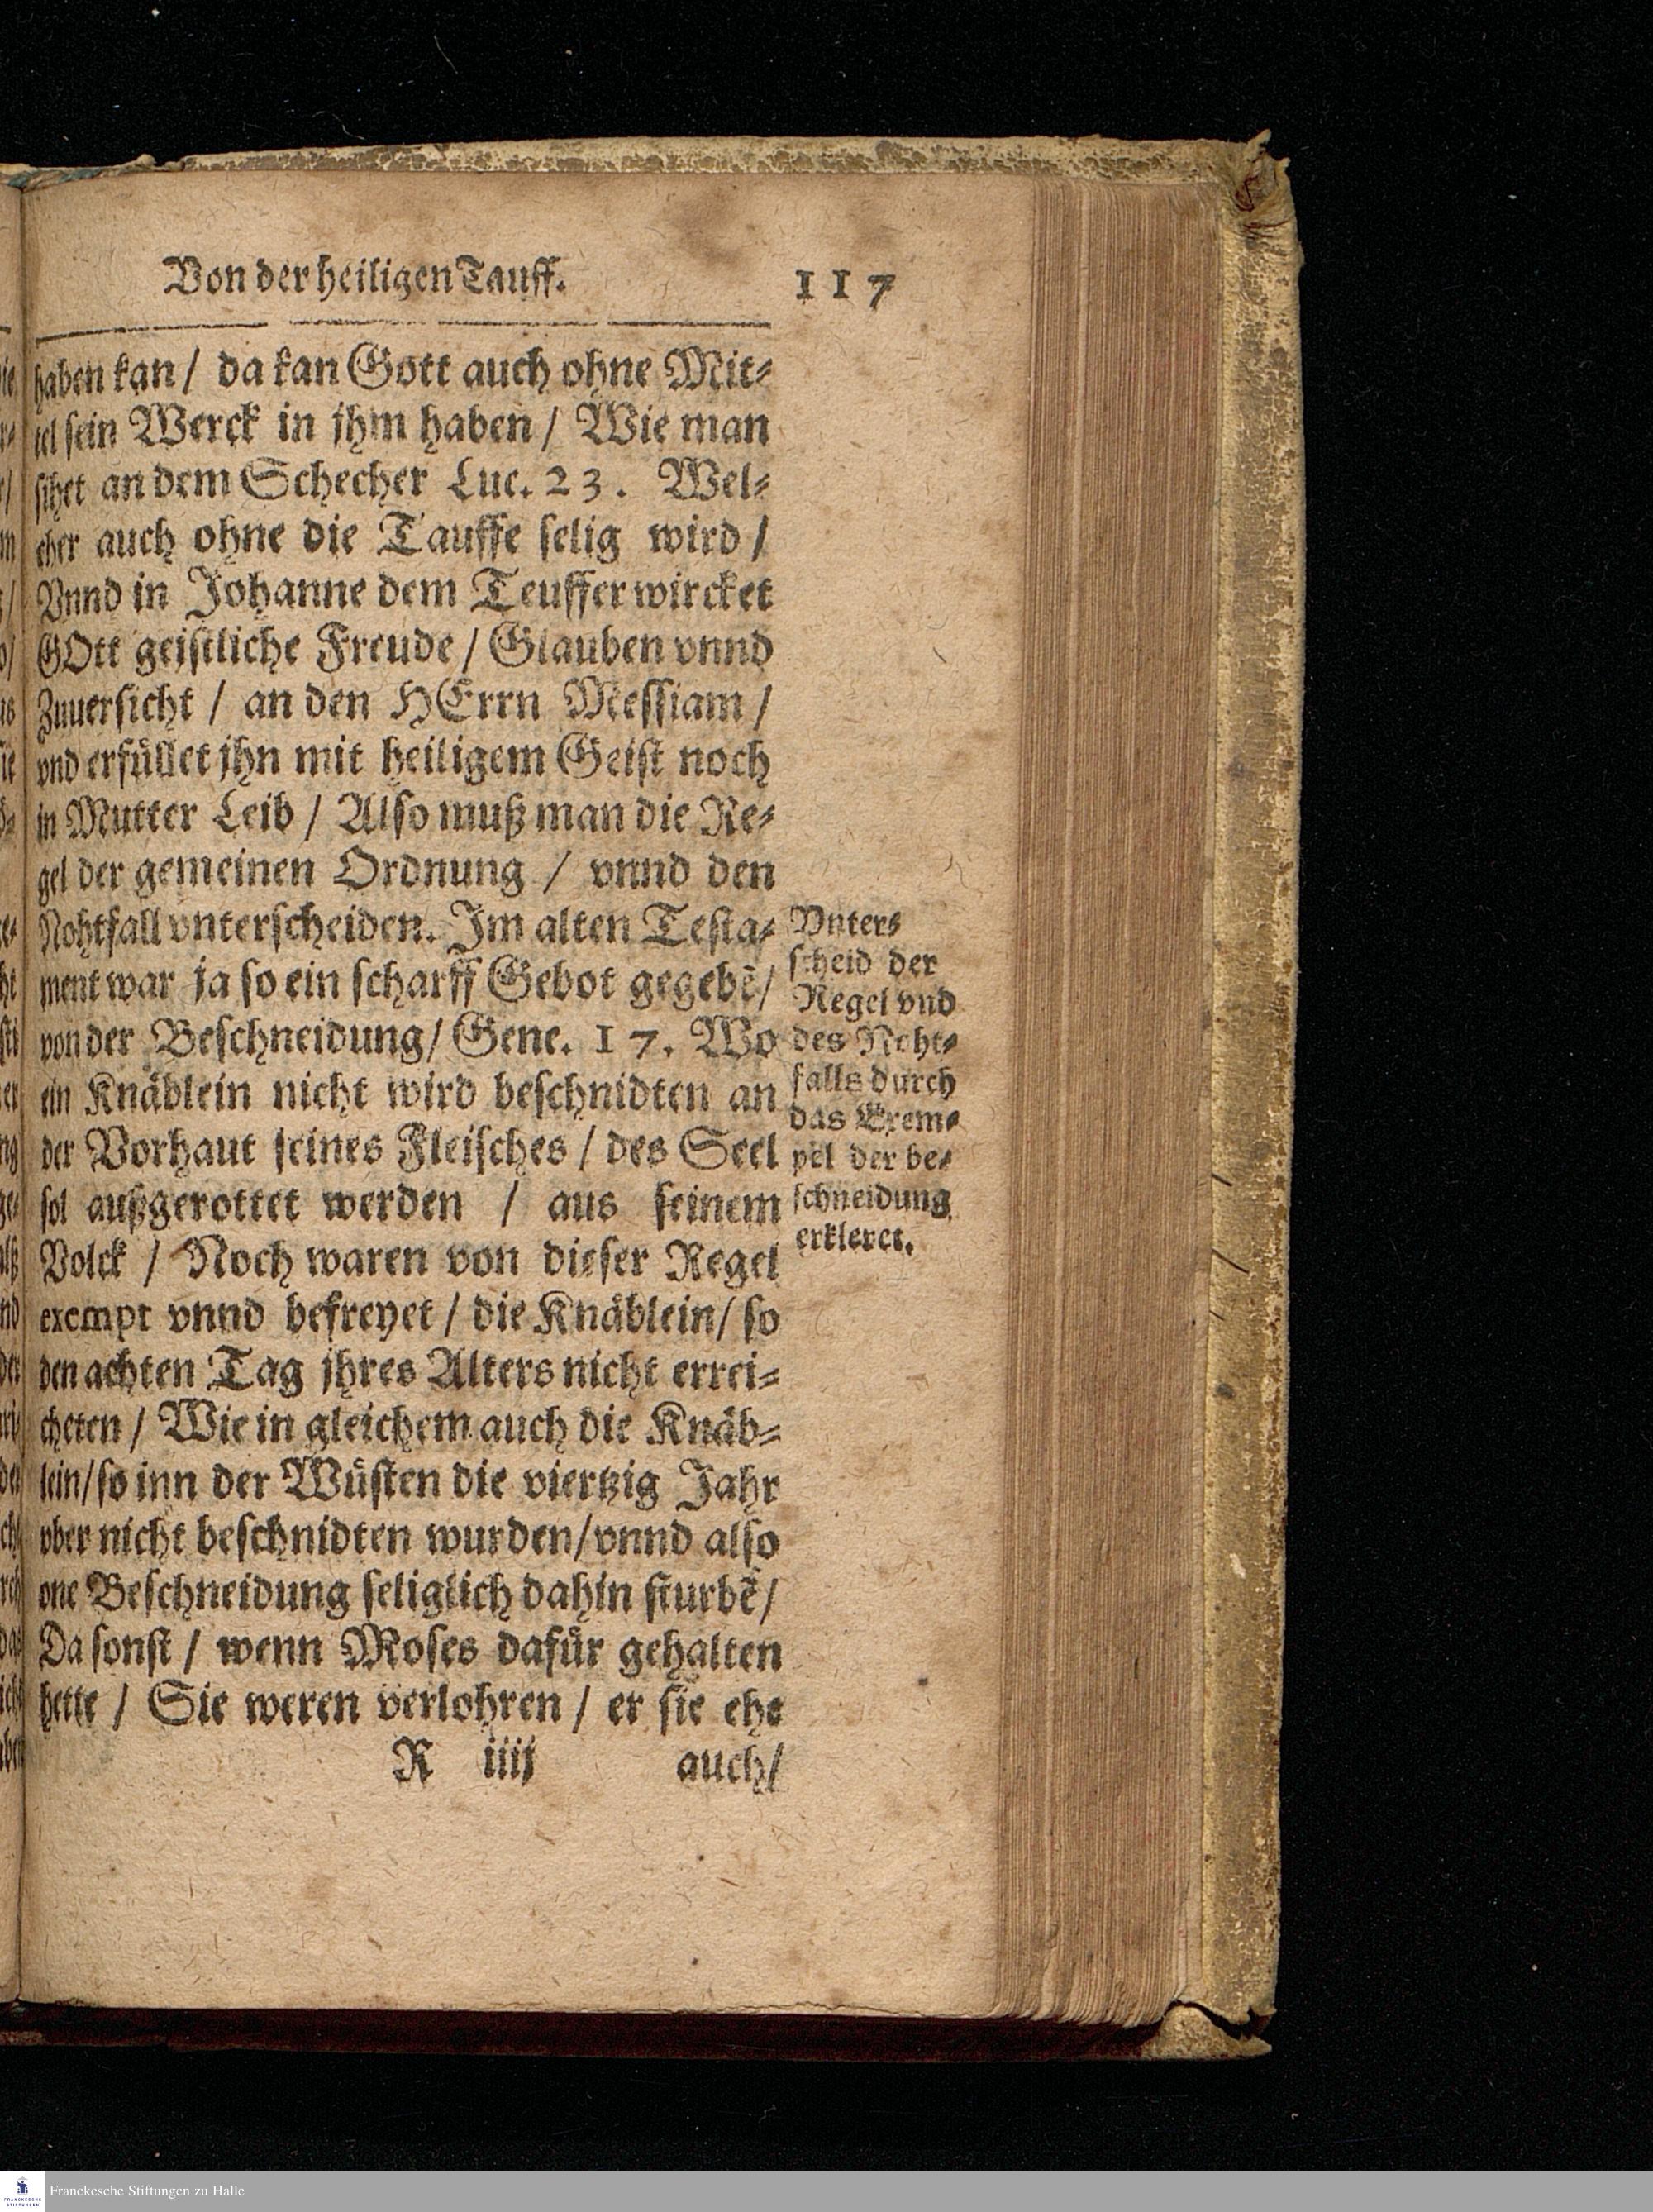 Von der heiligen Tauff. 117
haben kan / da kan Gott auch ohne Mit⸗
tel sein Werck in jhm haben / Wie man
sihet an dem Schecher Luc. 23. Wel⸗
cher auch ohne die Tauffe selig wird /
Vnnd in Johanne dem Teuffer wircket
GOtt geistliche Freude / Glauben vnnd
Zuuersicht / an den HErrn Messiam /
vnd erfüllet jhn mit heiligem Geist noch
in Mutter Leib / Also muß man die Re⸗
gel der gemeinen Ordnung / vnnd den
Nohtfall vnterscheiden. Im alten Testa⸗
ment war ja so ein scharff Gebot gegebẽ /
von der Beschneidung / Gene. 17. Wo
ein Knäblein nicht wird beschnidten an
der Vorhaut seines Fleisches / des Seel
sol außgerottet werden / aus seinem
Volck / Noch waren von dieser Regel
exempt vnnd befreyet / die Knäblein / so
den achten Tag jhres Alters nicht errei⸗
cheten / Wie in gleichem auch die Knäb⸗
lein / so inn der Wüsten die viertzig Jahr
vber nicht beschnidten wurden / vnnd also
one Beschneidung seliglich dahin sturbẽ /
Da sonst / wenn Moses dafür gehalten
hette / Sie weren verlohren / er sie ehe
R iiij auch /
Vnters
scheid der
Regel vnd
des Noht⸗
falls durch
das Exem⸗
pel der be⸗
schneidung
erkleret.
Franckesche Stiftungen zu Halle